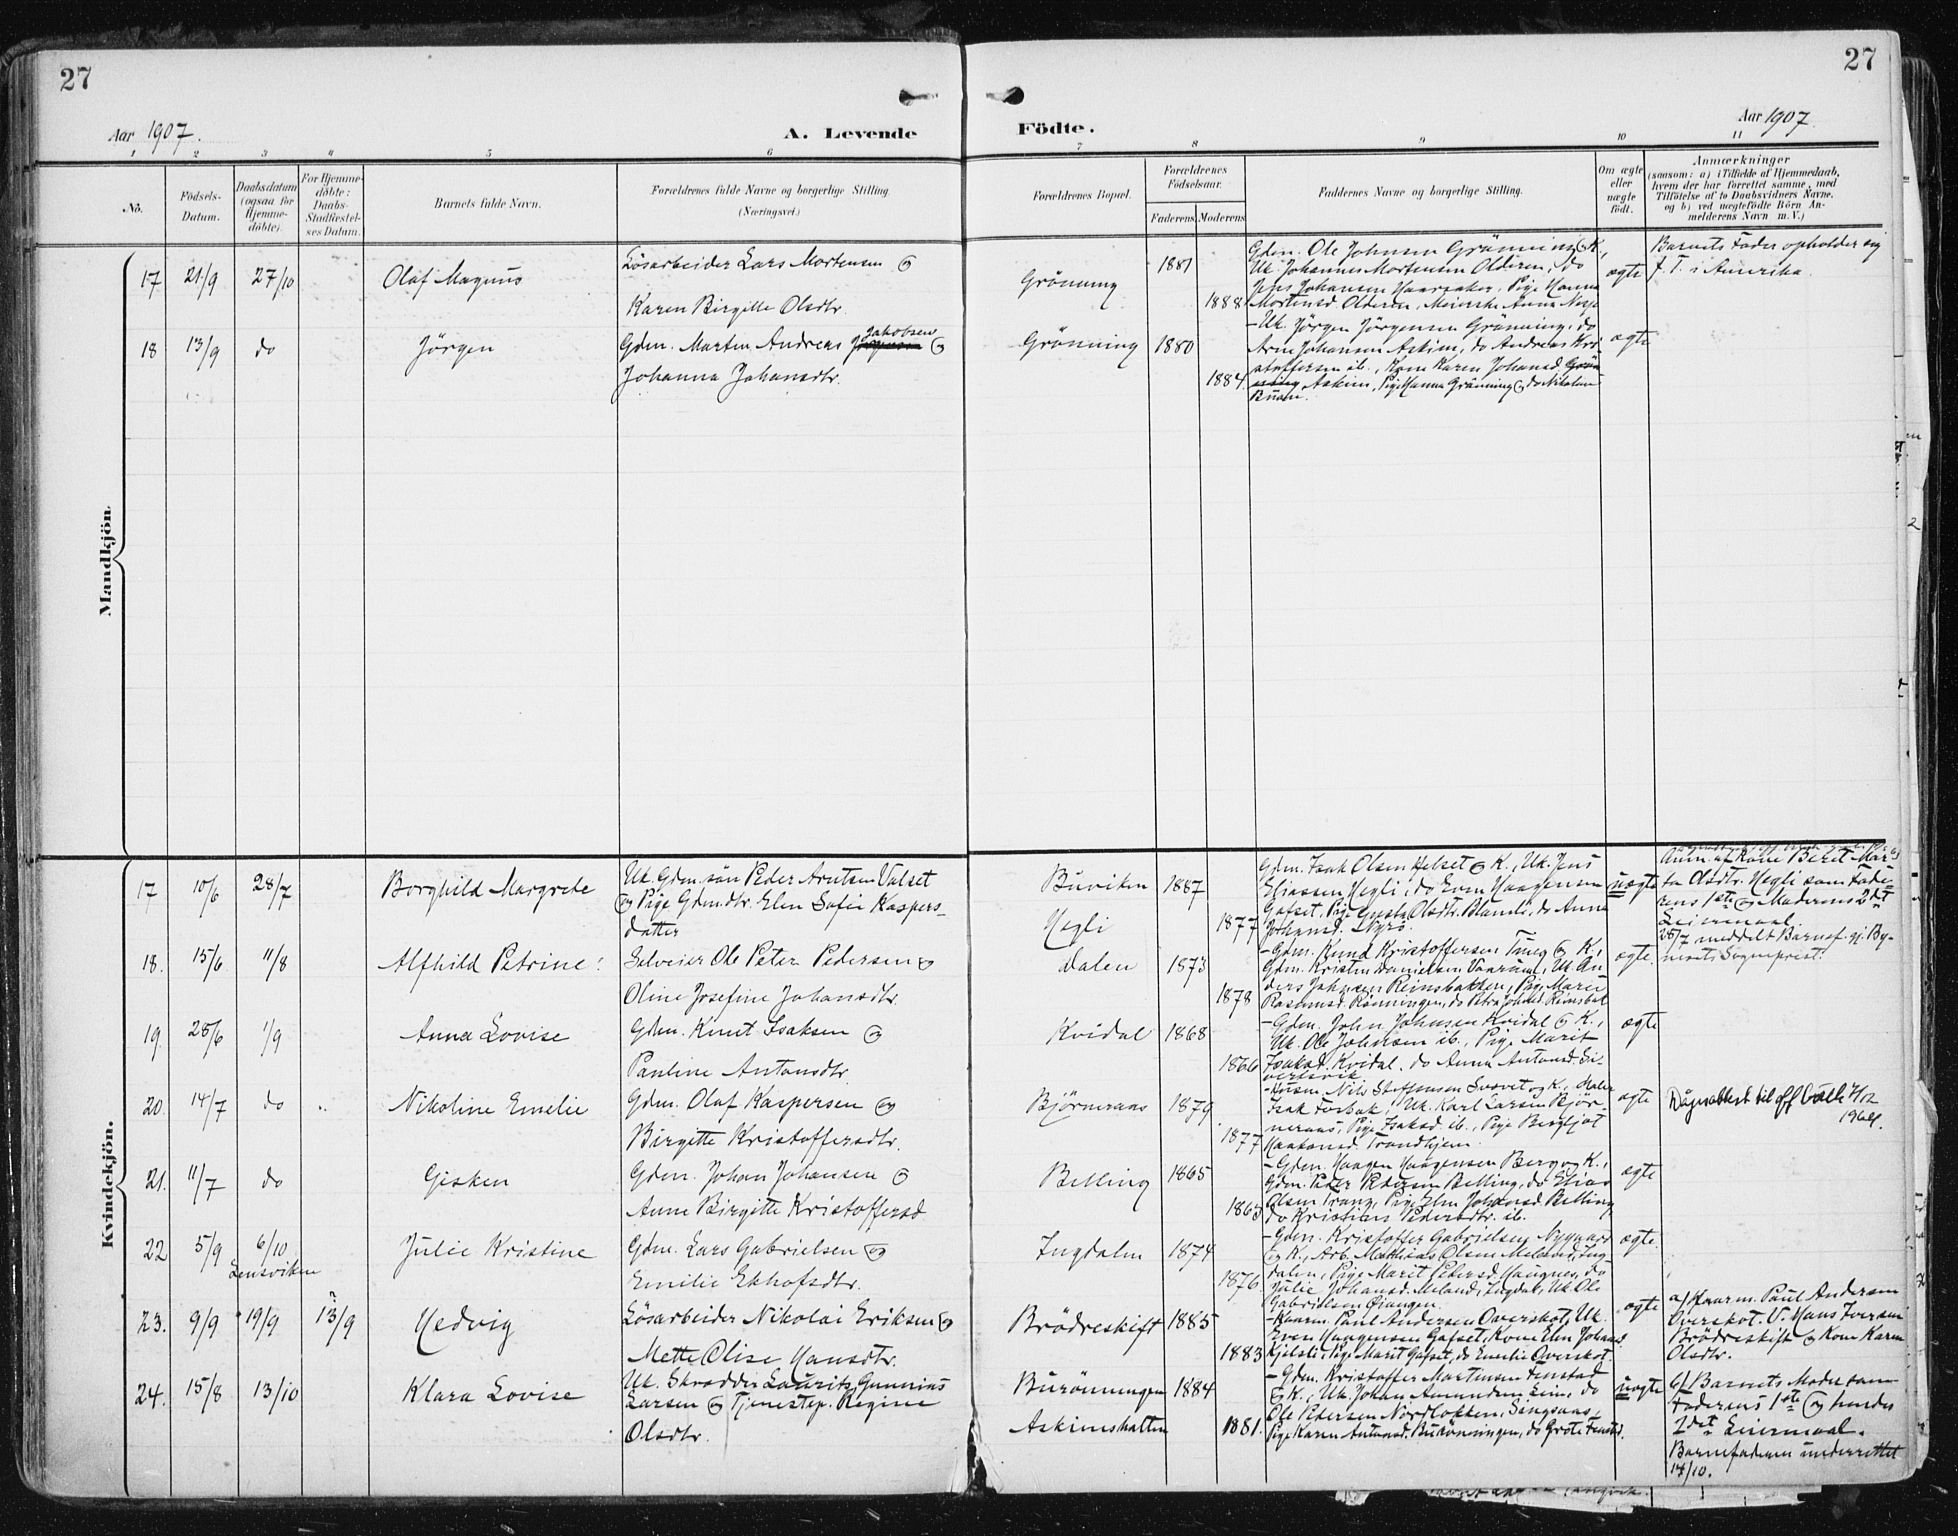 27
27
Aar 1907.
A. Levende
Födte.
Aar 1907.
1 2 3 4 5 6 7 8 9 10 11
No.
Födsels-Datum.
Daabsdatum (ogsaa for Hjemme-döbte).
For Hjemme-döbte: Daabs-Stadfæstel-ses Datum.
Barnets fulde Navn.
Forældrenes fulde Navne og borgerlige Stilling.
(Næringsvei.)
Forældrenes Bopæl.
Forældrenes Födselsaar.
Faderens.
Moderens.
Faddernes Navne og borgerlige Stilling.
Om ægte eller uægte födt.
Anmærkninger
(saasom: a) i Tilfælde af Hjemmedaab,
hvem der har forrettet samme, med
Tilföielse af to Daabsvidners Navne,
og b) ved uægtefödte Börn An-
melderens Navn m. V.)
Mandkjön.
17 21/9 27/10 Olaf Magnus
Lösarbeider Lars Mortensen og
Karen Birgitte Olsdtr.
Grönning 1881
1888
Gdm. Ole Johnsen Grönning og K.,
Uk. Johannes Mortensen Olderen, do
Jens Johansen, Pige Hanna
Mortensd. Olderen, Meierske Anna
ægte
Barnets Fader opholder sig
f. T. i Amerika.
18 13/9 do Jörgen
Gdm. Martin Andreas Jakobsen og
Johanna Johansdtr.
Grönning 1880
1884.
- Uk. Jörgen Jörgensen Grönning, do
Arne Johansen Askim, do Andreas Kri-
stoffersen ib., Kone Karen Johansd.
Askim, Pige Hanna Grönning og do Nikoline
ægte
Kvindekjön.
17 10/6 28/7 Borghild Margrete
Uk. Gdm.sön Peder Arntsen Valset
og Pige Gdmdtr. Elen Sofie Kaspers-
datter
Buviken 1887
Hegli
1877
Gdm. Isak Olsen Helset og K., Uk. Jens
Eliassen Hegli, do Even Haagensen
Gafset, Pige Olsdtr. do Anna
Johansd.
uægte
Anm. af Kone Beret Mar-
ta Olsdtr. Hegli som Fade-
rens 1ste og Moderens 2det
Leiermaal.
28/7 meddelt Barnef. gj. By-
nesets Sogneprest.
18. 15/6 11/8 Alfhild Petrine
Selveier Ole Peter Pedersen og
Oline Josefine Johansdtr.
Dalen 1873
1878
- Gdm. Knud Kristoffersen og K.,
Gdm. Kristen Danielsen, Uk. An-
ders Johnsen Reinsbakken, Pige Marie
Rasmusd. Rönningen, do Petra Johnsd.
ægte
19. 25/6 1/9 Anna Lovise
Gdm. Knut Isaksen og
Pauline Antonsdtr.
Kvidal 1868
1866
- Gdm. John Johnsen Kvidal og K.,
Uk. Ole Johnsen ib., Pige Marit
Isaksd. Kvidal, do Anna Antonsd. Si-
vertsvik
ægte
20. 14/7 do Nikoline Emelie
Gdm. Olaf Kaspersen og
Birgitte Kristoffersdtr.
Bjørneraas 1879
1877
- Husm. Nils Steffensen og K.,
Isak, Uk. Karl Larsen Bjør-
neraas, Pige Isaksd. ib., Pige Bergljot
Haakonsd. Trondhjem.
ægte
Dåpsattest til off. bruk
1964.
21. 11/7 do Gisken
Gdm. Johan Johansen og
Anne Birgitte Kristoffersd.
Belling 1865
1863
- Gdm. Haagen Haagensen Berg og K.,
Gdm. Peter Pedersen Belling, do Elias
Olsen, Pige Elen Johansd. Belling
do Kristian Pedersdtr. ib.
ægte
22 5/9 6/10 Lensviken Julie Kristine
Gdm. Lars Gabrielsen og
Emilie Ekhofsdtr.
Ingdalen 1874
1876
- Gdm. Kristoffer Gabrielsen Nygaard
og K., Arb. Mathias Olsen Meland, Ing-
dalen, Pige Marit Petersd. Haugnes, do
Julie Johansd. Meland, Ingdal, Uk. Ole
Gabrielsen
ægte
23. 9/9 19/9 13/9 Hedvig
Lösarbeider Nikolai Eriksen og
Mette Olise Hansdtr.
Brödreskift 1885
1883
- Kaarm. Paul Andersen Overskot, Uk.
Even Haagensen Gafset, Kone Elen Johans
Pige Marit Gafset, do Emelie Overskot.
ægte
a/ Kaarm. Paul Andersen
Overskot. V. Hans Iversen
Brödreskift og Kone Karen
Olsdtr.
24. 15/8 13/10 Klara Lovise
Uk. Skrædder Laurits Gunnius
Larsen og Tjenestep. Regine
Olsdtr.
Burönningen 1884
Askimshatten
1881.
- Gdm. Kristoffer Martinsen Fenstad
og K., Uk. Johan Amundsen, do
Ole Pedersen Nordlökken, Singsaas,
Pige Karen Antonsd. Burönningen, do Grete Fenstad.
uægte
b/ Barnets Moder som
Faderens 1ste og hendes
2det Leiermaal.
Barnefaderen underrettet
14/10.